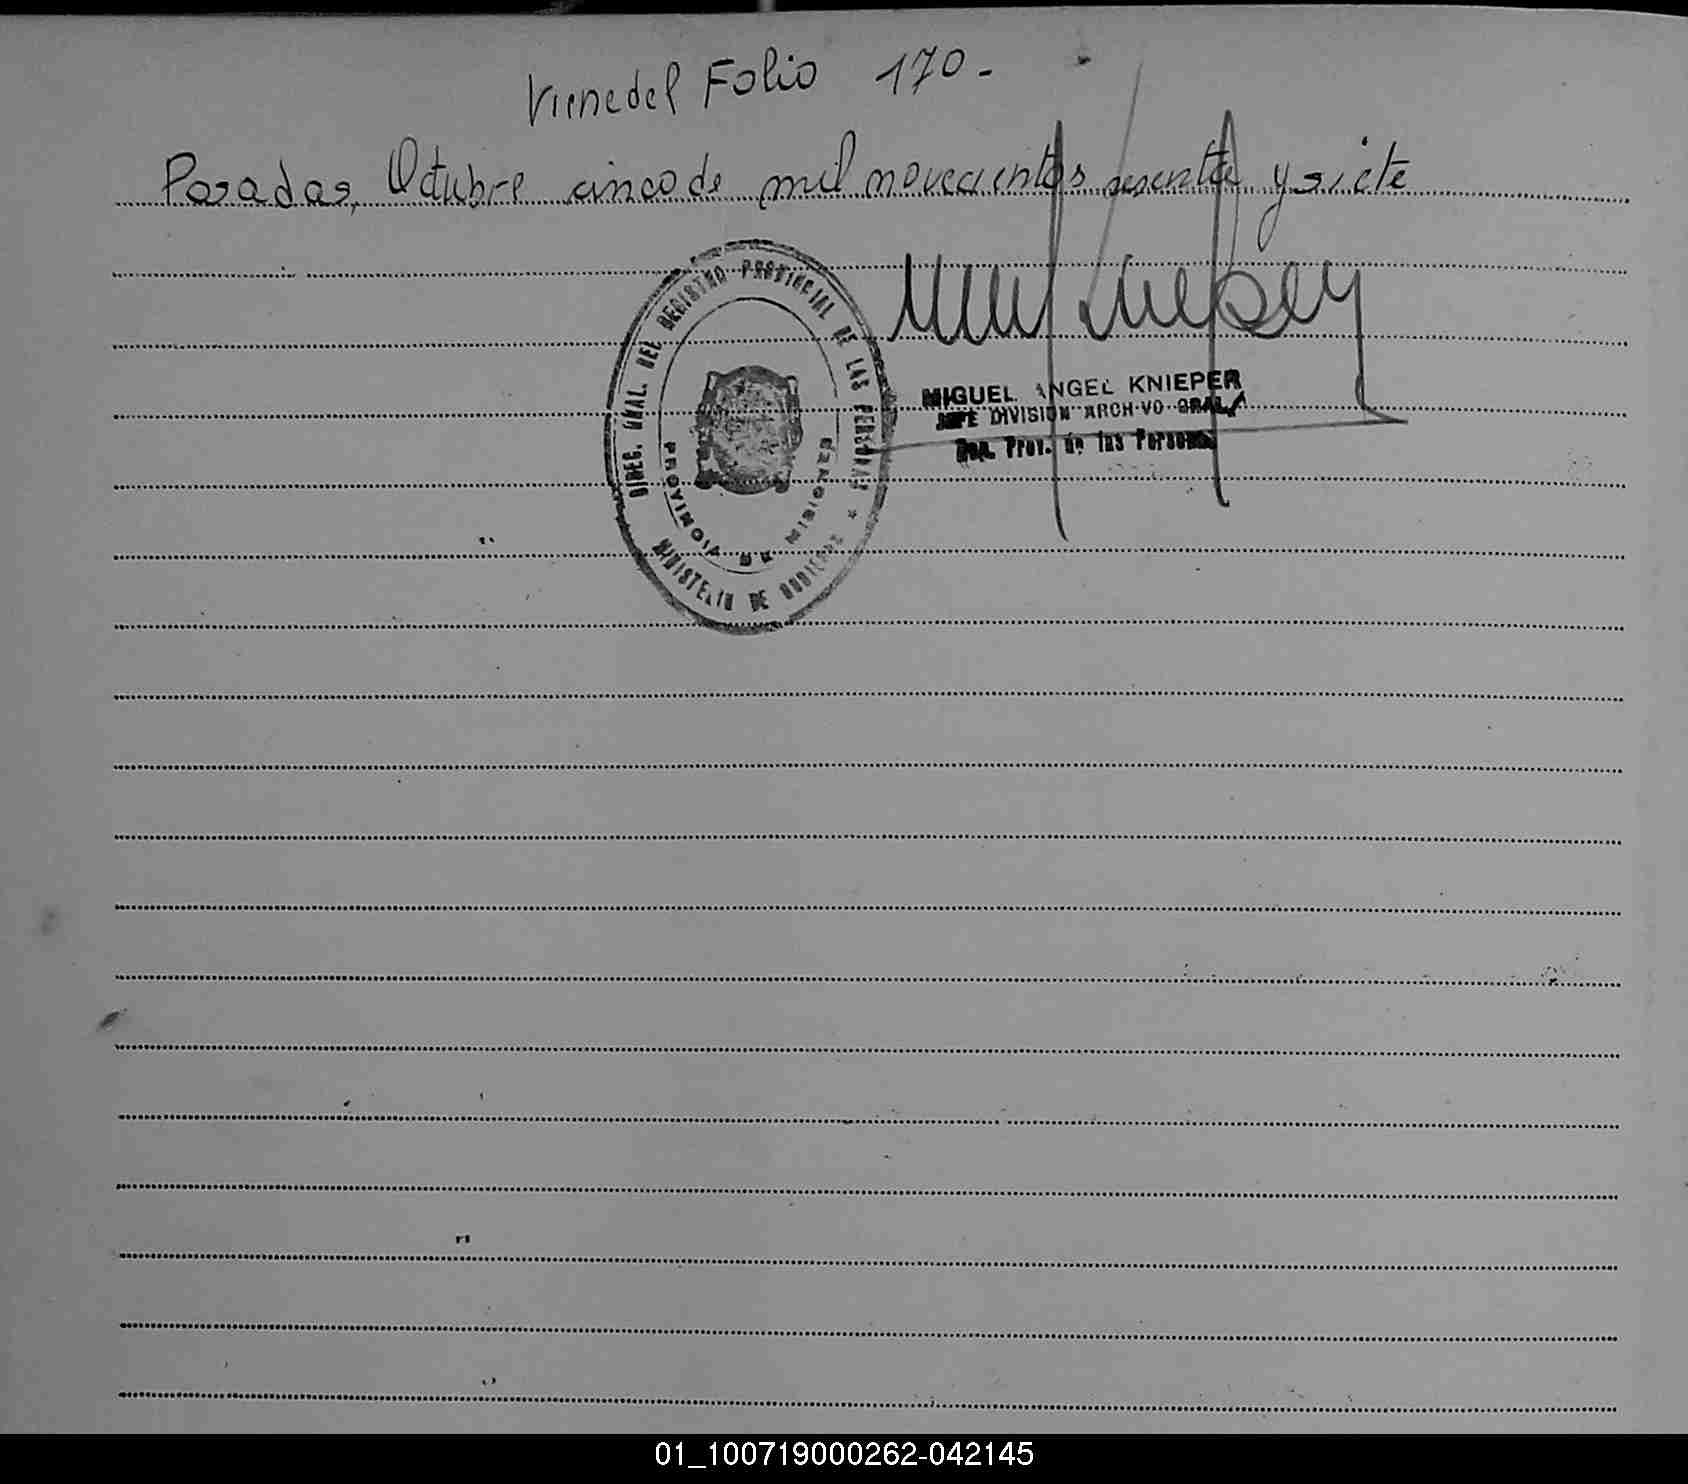 Viene del Folio 170.-
Posadas, Octubre cinco de mil novecientos sesenta y siete
DIREC. GRAL. DEL REGISTRO PROVINCIAL DE LAS PERSONAS *
MINISTERIO DE GOBIERNO
PROVINCIA DE MISIONES
MIGUEL ANGEL KNIEPER
JEFE DIVISION ARCHIVO GRAL.
Reg. Prov. de las Personas
01_100719000262-042145